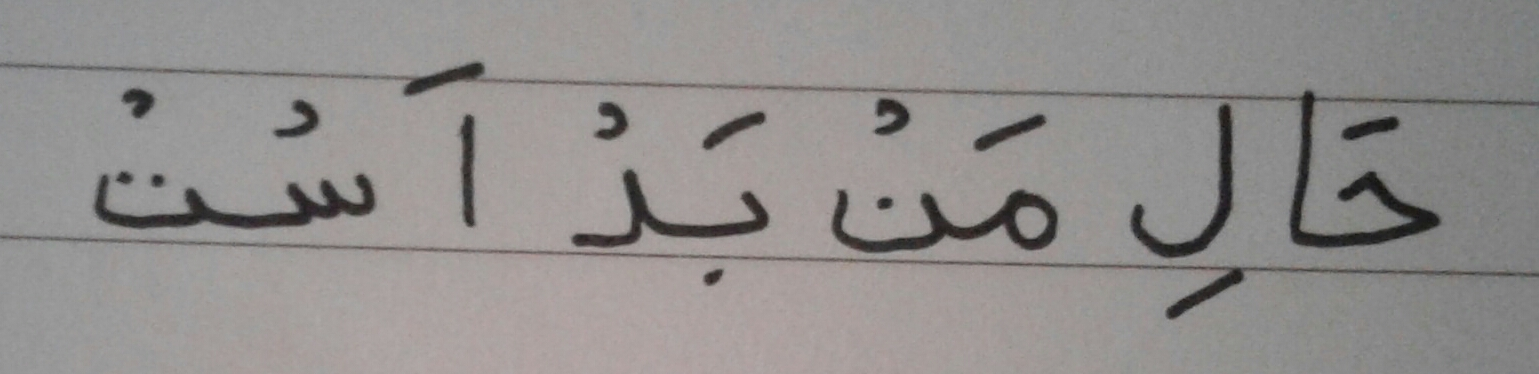 حَالِ مَنْ بَدْ اَسْتْ